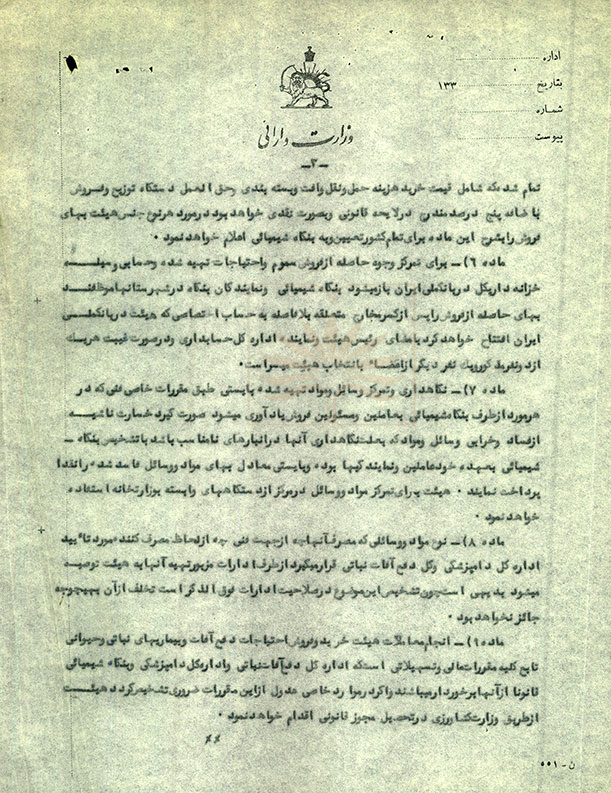 اداره
بتاریخ ۱۳۳
شماره
پیوست
وزارت دارائی
ـ۳ـ
تمام شده که شامل قیمت خرید هزینه حمل ونقل وافت وبسته بندی وحق العمل دستگاه توزیع وفروش
باضافه پنج درصد مندرج درلایحه قانونی وبصورت نقدی خواهد بود درمورد هرنوع جنس هیئت بهای
فروش رابشرح این ماده برای تمام کشورتعیین وبه بنگاه شیمیائی اعلام خواهد نمود ۰
ماده ۶) ـ برای تمرکز وجوه حاصله ازفروش سموم واحتیاجات تهیه شده وحسابی وسیله
خزانه داریکل دربانکملی ایران بازمیشود بنگاه شیمیائی ونمایندگان بنگاه درشهرستانها موظفند
بهای حاصله ازفروش راپس ازکسرمخارج متعلقه بلافاصله به حساب اختصاصی که هیئت دربانکملی
ایران افتتاح خواهد کرد بامضای رئیس هیئت ونماینده اداره کل حسابداری ودرصورت غیبت هریک
ازدونفر یک نفر دیگر ازاعضاء بانتخاب هیئت میسراست۰
ماده ۷) ـ نگاهداری وتمرکز وسائل ومواد تهیه شده بایستی طبق مقررات خاصی فنی که در
هرمورد ازطرف بنگاه شیمیائی بعاملین ومسئولین فروش یادآوری میشود صورت گیرد خسارت ناشیه
ازفساد وخرابی وسائل ومواد که بعلت نگاهداری آنها درانبارهای نامناسب باشد باتشخیص بنگاه ـ
شیمیائی بعهده خود عاملین ونمایندگیها بوده وبایستی معادل بهای مواد ووسائل فاسد شده رانقدا
پرداخت نمایند ۰ هیئت برای تمرکز مواد ووسائل درمرکز ازدستگاههای وابسته بوزارتخانه استفاده
خواهد نمود ۰
ماده ۸) ـ نوع مواد ووسائلی که مصرف آنها چه ازجهت فنی چه ازلحاظ مصرف کننده مورد تائید
اداره کل دامپزشکی وکل دفع آفات نباتی قرارمیگیرد ازطرف ادارات مزبورتهیه آنها به هیئت توصیه
میشود بدیهی است چون تشخیص این موضوع درصلاحیت ادارات فوق الذکر است تخلف ازآن بهیچوجه
جائز نخواهد بود ۰
ماده ۹) ـ انجام معاملات هیئت خرید وفروش احتیاجات دفع آفات وبیماریهای نباتی وحیوانی
تابع کلیه مقررات مالی وتسهیلاتی است که اداره کل دفع آفات نباتی واداره کل دامپزشکی وبنگاه شیمیائی
قانونا ازآنها برخوردارمیباشند واگردرموارد خاصی عدول ازاین مقررات ضروری تشخیص گردد هیئت
ازطریق وزارت کشاورزی درتحصیل مجوز قانونی اقدام خواهد نمود ۰
××
ن - ۵۵۱